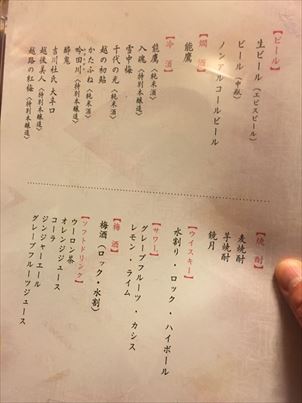 【ビール】
生ビール（エビスビール）
ビール（中瓶）
ノンアルコールビール
【燗酒】
能鷹
【冷酒】
能鷹（純米酒）
入魂（特別本醸造）
雪中梅
千代の光（純米酒）
越の初鈴
かたふね（純米酒）
吟田川（特別本醸造）
醉鬼
吉川杜氏 大辛口
越後美人（特別本醸造）
越路の紅梅（特別本醸造）
【焼酎】
麦焼酎
芋焼酎
鏡月
【ウイスキー】
水割り・ロック・ハイボール
【サワー】
グレープフルーツ・カシス
レモン・ライム
【梅酒】
梅酒（ロック・水割）
【ソフトドリンク】
ウーロン茶
オレンジジュース
コーラ
ジンジャーエール
グレープフルーツジュース